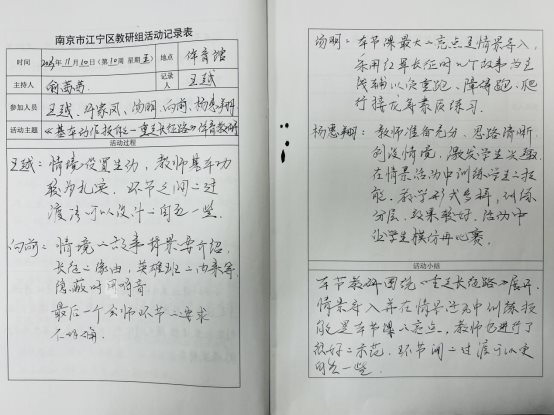 南京市江宁区教研组活动记录表
时间 2023年11月10日(第10周 星期五) 地点 体育馆
主持人 俞茜茜 记录人 王越
参加人员 王越、许家凤、汤明、向前、杨惠翔
活动主题 《基本动作技能—重走长征路》体育教研
活动过程
王越：情境设置生动，教师基本功
较为扎实。环节之间的过
渡语可以设计的自然一些。
向前：情境的故事背景要介绍，
长征的缘由，英雄班的由来等
隐蔽时用哨音
最后一个会师环节的要求
不明确
汤明：本节课最大的亮点是情景导入，
采用红军长征时的故事为主
线辅以次重跑、障碍跑、爬
行接龙等素质练习。
杨惠翔：教师准备充分、思路清晰
创设情境，激发学生兴趣
在情景活动中训练学生的技
能。教学形式多样，训练
分层，效果较好。活动中
让学生模仿再比赛。
活动小结
本节教研围绕《重走长征路》展开，
情景导入并在情景活动中训练技
能是本节课的亮点，教师也进行了
很好的示范。环节间的过渡可以更
自然一些。